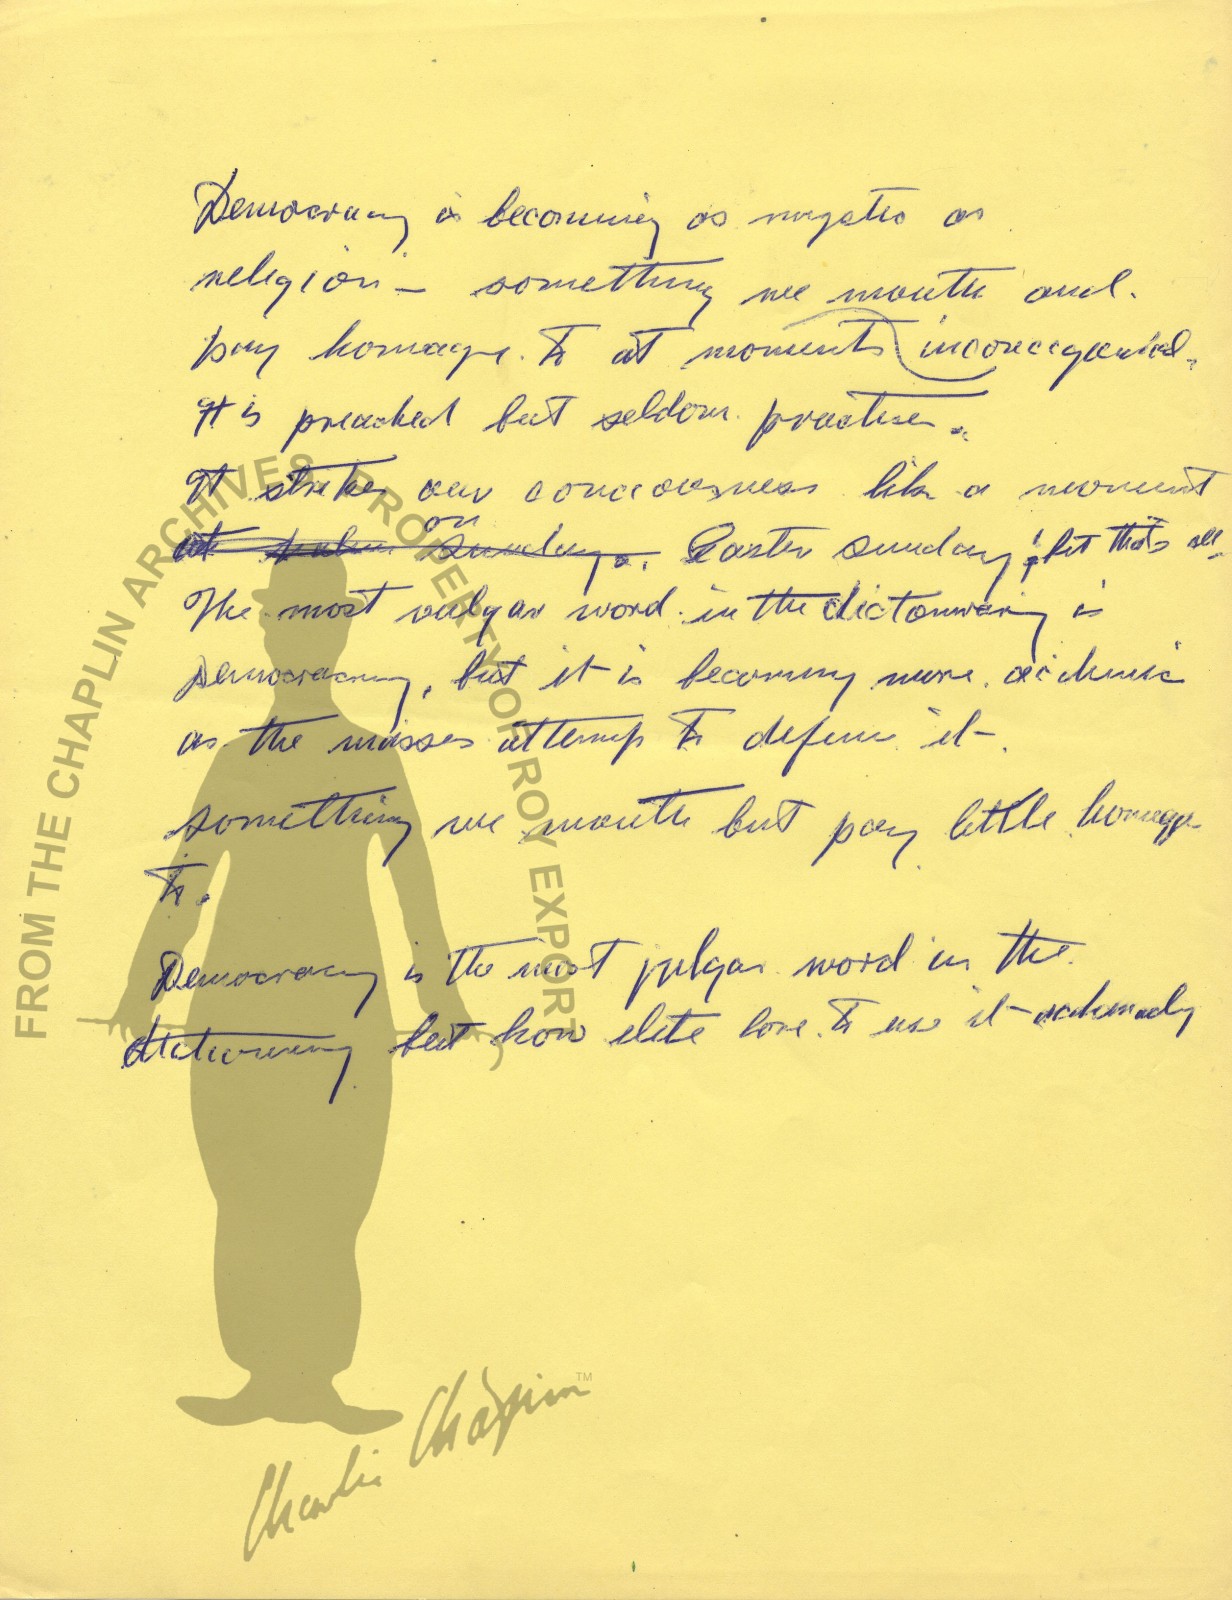 Democracy is becoming as mystic as
religion – something we mouth and
pay homage to at moments
It is preached but seldom practised.
It strikes our conciousness like a moment
on Sunday. Easter Sunday, but thats all.
The most vulgar word in the dictonary is
Democracy, but it is becoming more acidemic
as the masses attempt to define it.
something we mouth but pay little homage
to.
Democracy is the most vulgar word in the
dictionary but how elite love to use it
FROM THE CHAPLIN ARCHIVES PROPERTY OF ROY EXPORT
Charlie Chaplin TM